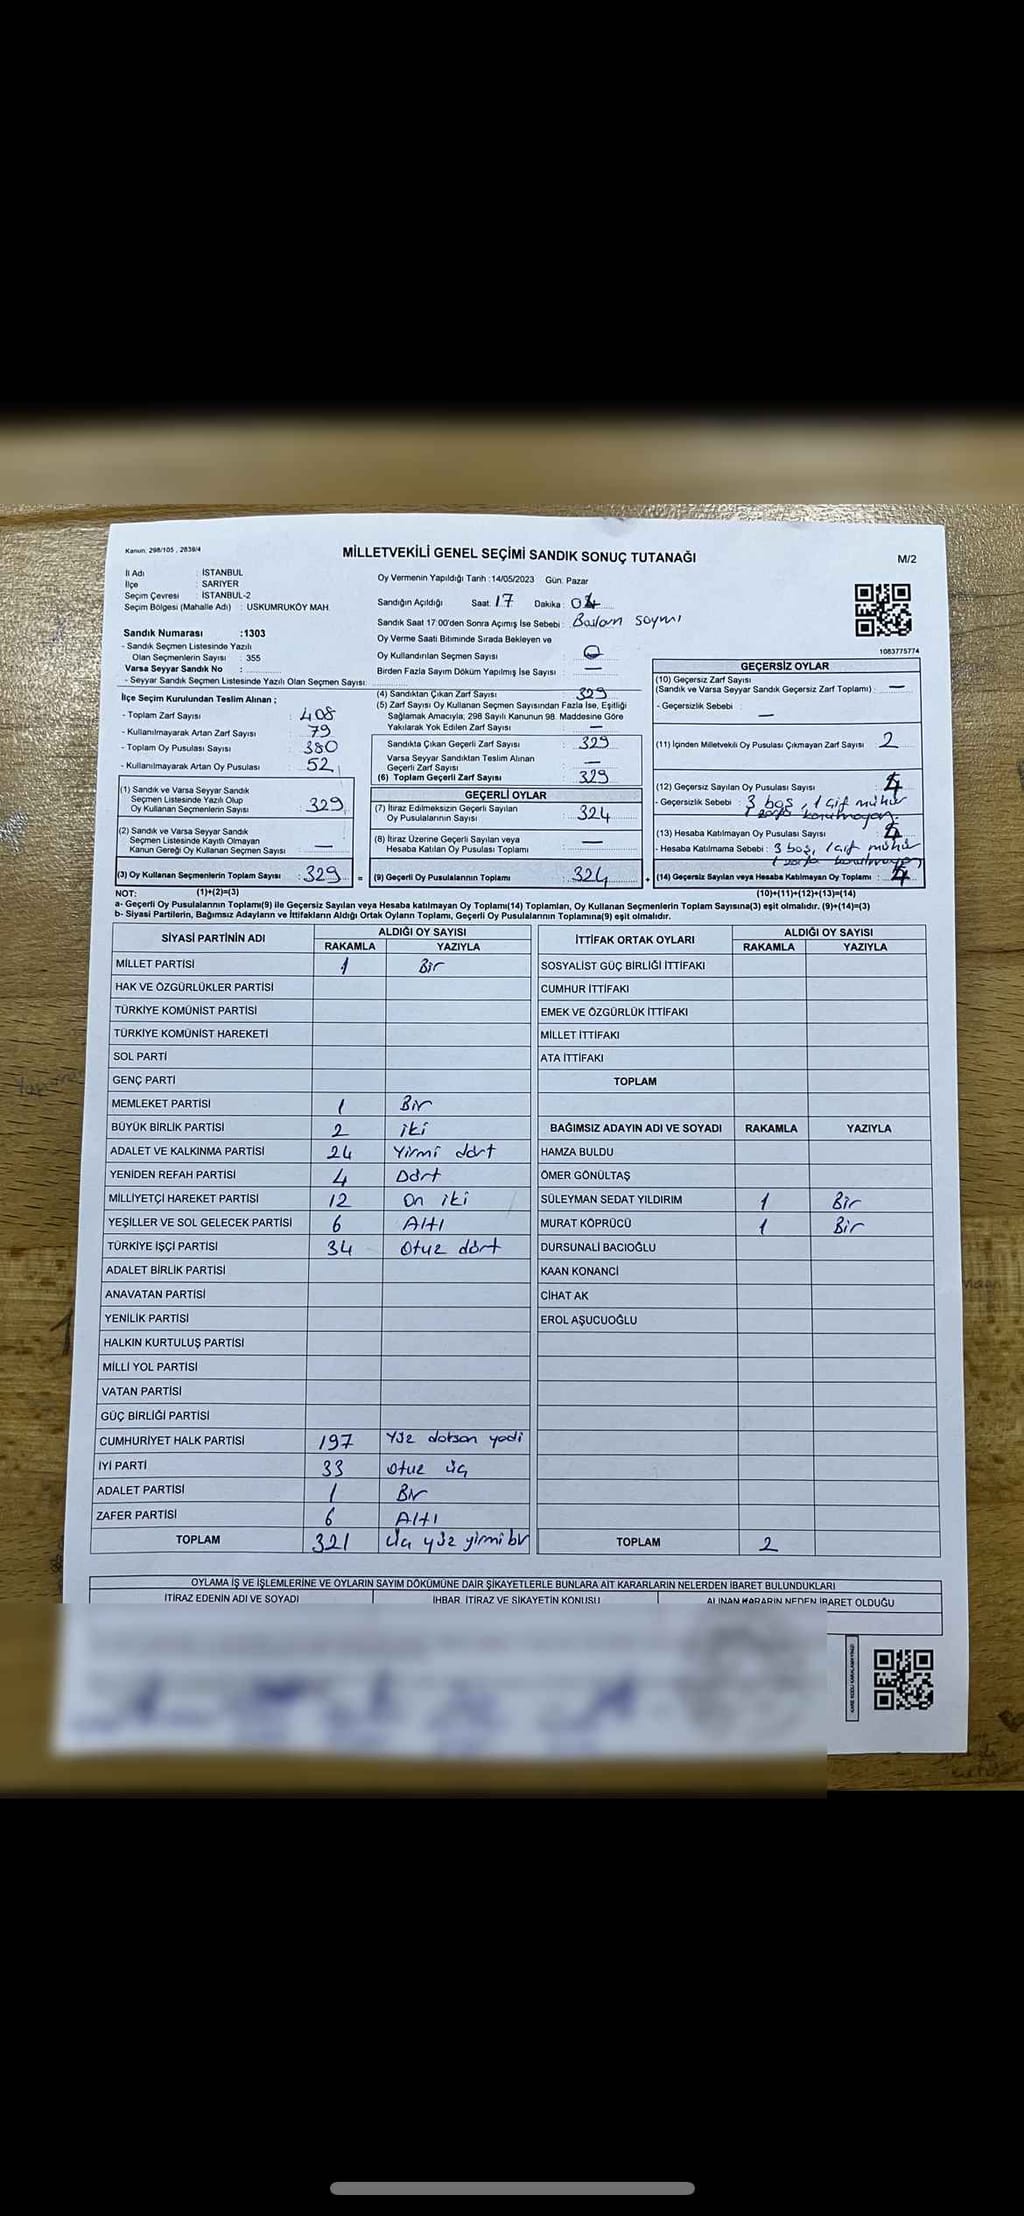 Kanun. 298/105 , 2839/4
MİLLETVEKİLİ GENEL SEÇİMİ SANDIK SONUÇ TUTANAĞI
M/2
İl Adı : İSTANBUL
İlçe : SARIYER
Seçim Çevresi : İSTANBUL-2
Seçim Bölgesi (Mahalle Adı) : USKUMRUKÖY MAH.
Oy Vermenin Yapıldığı Tarih : 14/05/2023 Gün. Pazar
Sandığın Açıldığı Saat. 17 Dakika :
Sandık Saat 17:00'den Sonra Açımış İse Sebebi :
Oy Verme Saati Bitiminde Sırada Bekleyen ve
Oy Kullandırılan Seçmen Sayısı : 0
Birden Fazla Sayım Döküm Yapılmış İse Sayısı : —
1083775774
Sandık Numarası :1303
- Sandık Seçmen Listesinde Yazılı
Olan Seçmenlerin Sayısı : 355
Varsa Seyyar Sandık No :
- Seyyar Sandık Seçmen Listesinde Yazılı Olan Seçmen Sayısı:
İlçe Seçim Kurulundan Teslim Alınan ;
- Toplam Zarf Sayısı : 408
- Kullanılmayarak Artan Zarf Sayısı : 79
- Toplam Oy Pusulası Sayısı : 380
- Kullanılmayarak Artan Oy Pusulası : 52
(1) Sandık ve Varsa Seyyar Sandık
Seçmen Listesinde Yazılı Olup
Oy Kullanan Seçmenlerin Sayısı : 329
(2) Sandık ve Varsa Seyyar Sandık
Seçmen Listesinde Kayıtlı Olmayan
Kanun Gereği Oy Kullanan Seçmen Sayısı : —
(3) Oy Kullanan Seçmenlerin Toplam Sayısı : 329 =
(4) Sandıktan Çıkan Zarf Sayısı : 329
(5) Zarf Sayısı Oy Kullanan Seçmen Sayısından Fazla İse, Eşitliği
Sağlamak Amacıyla, 298 Sayılı Kanunun 98. Maddesine Göre
Yakılarak Yok Edilen Zarf Sayısı : —
Sandıkta Çıkan Geçerli Zarf Sayısı : 329
Varsa Seyyar Sandıktan Teslim Alınan
Geçerli Zarf Sayısı : —
(6) Toplam Geçerli Zarf Sayısı : 329
GEÇERLİ OYLAR
(7) İtiraz Edilmeksizin Geçerli Sayılan
Oy Pusulalarının Sayısı : 324
(8) İtiraz Üzerine Geçerli Sayılan veya
Hesaba Katılan Oy Pusulası Toplamı : —
(9) Geçerli Oy Pusulalarının Toplamı : 324 +
GEÇERSİZ OYLAR
(10) Geçersiz Zarf Sayısı
(Sandık ve Varsa Seyyar Sandık Geçersiz Zarf Toplamı) : —
- Geçersizlik Sebebi : —
(11) İçinden Milletvekili Oy Pusulası Çıkmayan Zarf Sayısı : 2
(12) Geçersiz Sayılan Oy Pusulası Sayısı :
- Geçersizlik Sebebi : 3 boş, 1 çift mühür
(13) Hesaba Katılmayan Oy Pusulası Sayısı :
- Hesaba Katılmama Sebebi : 3 boş, 1 çift mühür
(14) Geçersiz Sayılan veya Hesaba Katılmayan Oy Toplamı :
NOT: (1)+(2)=(3)
(10)+(11)+(12)+(13)=(14)
a- Geçerli Oy Pusulalarının Toplamı(9) ile Geçersiz Sayılan veya Hesaba katılmayan Oy Toplamı(14) Toplamları, Oy Kullanan Seçmenlerin Toplam Sayısına(3) eşit olmalıdır. (9)+(14)=(3)
b- Siyasi Partilerin, Bağımsız Adayların ve İttifakların Aldığı Ortak Oyların Toplamı, Geçerli Oy Pusulalarının Toplamına(9) eşit olmalıdır.
SİYASİ PARTİNİN ADI
ALDIĞI OY SAYISI
RAKAMLA YAZIYLA
MİLLET PARTİSİ 1 Bir
HAK VE ÖZGÜRLÜKLER PARTİSİ
TÜRKİYE KOMÜNİST PARTİSİ
TÜRKİYE KOMÜNİST HAREKETİ
SOL PARTİ
GENÇ PARTİ
MEMLEKET PARTİSİ 1 Bir
BÜYÜK BİRLİK PARTİSİ 2 iki
ADALET VE KALKINMA PARTİSİ 24 Yirmi dört
YENİDEN REFAH PARTİSİ 4 Dört
MİLLİYETÇİ HAREKET PARTİSİ 12 On iki
YEŞİLLER VE SOL GELECEK PARTİSİ 6 Altı
TÜRKİYE İŞÇİ PARTİSİ 34 Otuz dört
ADALET BİRLİK PARTİSİ
ANAVATAN PARTİSİ
YENİLİK PARTİSİ
HALKIN KURTULUŞ PARTİSİ
MİLLİ YOL PARTİSİ
VATAN PARTİSİ
GÜÇ BİRLİĞİ PARTİSİ
CUMHURİYET HALK PARTİSİ 197 Yüz doksan yedi
İYİ PARTİ 33 otuz üç
ADALET PARTİSİ 1 Bir
ZAFER PARTİSİ 6 Altı
TOPLAM 321 Üç yüz yirmi bir
İTTİFAK ORTAK OYLARI
ALDIĞI OY SAYISI
RAKAMLA YAZIYLA
SOSYALİST GÜÇ BİRLİĞİ İTTİFAKI
CUMHUR İTTİFAKI
EMEK VE ÖZGÜRLÜK İTTİFAKI
MİLLET İTTİFAKI
ATA İTTİFAKI
TOPLAM
BAĞIMSIZ ADAYIN ADI VE SOYADI RAKAMLA YAZIYLA
HAMZA BULDU
ÖMER GÖNÜLTAŞ
SÜLEYMAN SEDAT YILDIRIM 1 Bir
MURAT KÖPRÜCÜ 1 Bir
DURSUNALİ BACIOĞLU
KAAN KONANCİ
CİHAT AK
EROL AŞUCUOĞLU
TOPLAM 2
OYLAMA İŞ VE İŞLEMLERİNE VE OYLARIN SAYIM DÖKÜMÜNE DAİR ŞİKAYETLERLE BUNLARA AİT KARARLARIN NELERDEN İBARET BULUNDUKLARI
İTİRAZ EDENİN ADI VE SOYADI
İHBAR, İTİRAZ VE ŞİKAYETİN KONUSU
ALINAN KARARIN NEDEN İBARET OLDUĞU